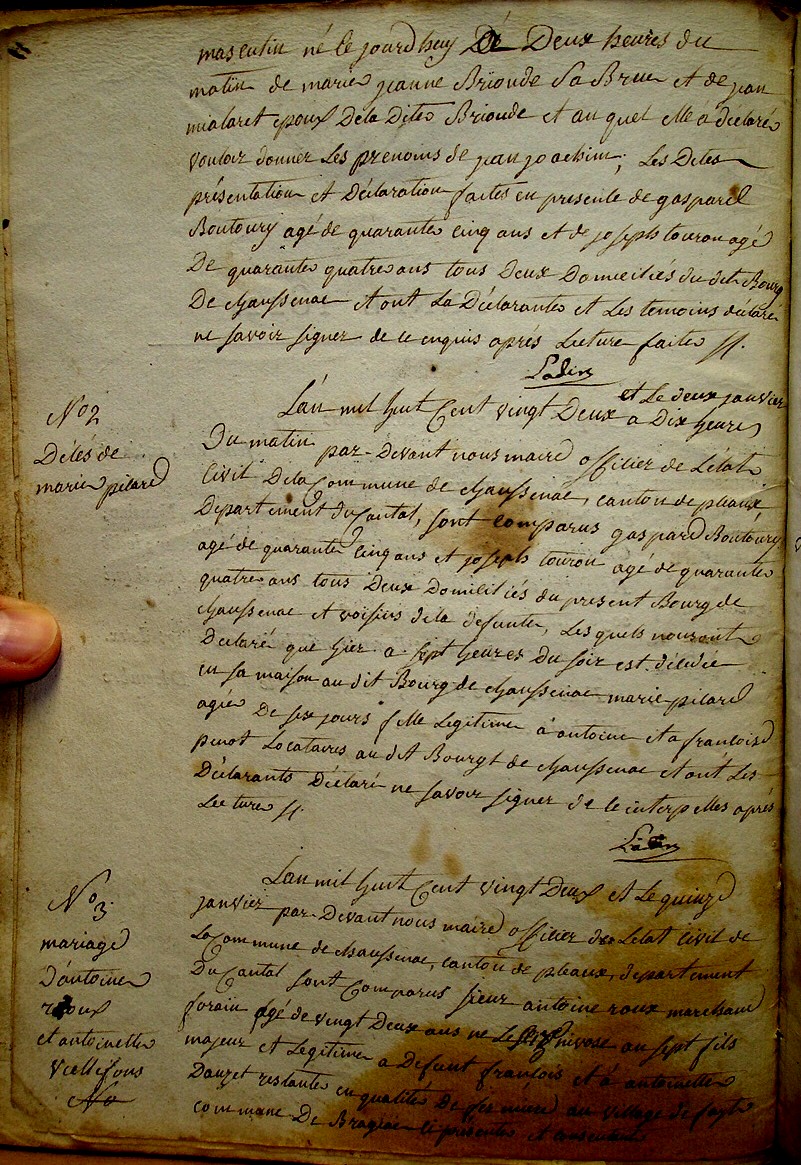 masculin né le jourdhuy Dé Deux heures du
matin de marie jeanne Brionde La Brue et de jean
mialaret epoux Dela Dite Brionde et au quel elle a déclaré
vouloir donner Les prenoms de jean joachim, Les Dites
présentation et Déclaration faites en presente de gaspard
Boutoury agé de quarante cinq ans et de joseph touron agé
De quarante quatre ans tous Deux Domiciliés du dit Bourg
De chaussenac et ont La Déclarante et Les temoins déclaré
ne savoir signer de ce enquis aprés Lecture faite //.
Ladin
No 2
Délés de
marie pilard
Lan mil huit Cent vingt Deux et Le deux janvier
a Dix heures
Du matin par-Devant nous maire officier de Létat
Civil Dela Commune de chaussenac, canton de pleaux,
Departement du Cantal, sont comparus gaspard Boutoury
agé de quarante cinq ans et joseph touron agé de quarante
quatre ans tous Deux Domiciliés du present Bourg de
chaussenac et voisins dela defunte, Les quels nous ont
Declaré que hier a sept heures Du soir est décédée
en sa maison au dit Bourg de chaussenac marie pilard
agée De six jours fille Legitime à antoine et a francoise
penot Locataires au dit Bourgt de chaussenac et ont Les
Déclarants Déclaré ne savoir signer de ce interpellés aprés
Lecture //.
Ladin
No 3.
mariage
Dantoine
roux
et antoinette
vieillefons
No
Lan mil huit Cent vingt Deux et Le quinze
janvier par-Devant nous maire officier de Létat Civil de
La Commune de chaussenac, canton de pleaux, departement
Du Cantal sont Comparus sieur antoine roux marchand
forain agé de vingt Deux ans ne Le nivose an sept fils
majeur et Legitime a Defunt francois et à antoinette
Dauzet restante en qualité De mère au village de
commune De Bragiac ci présente et consentente